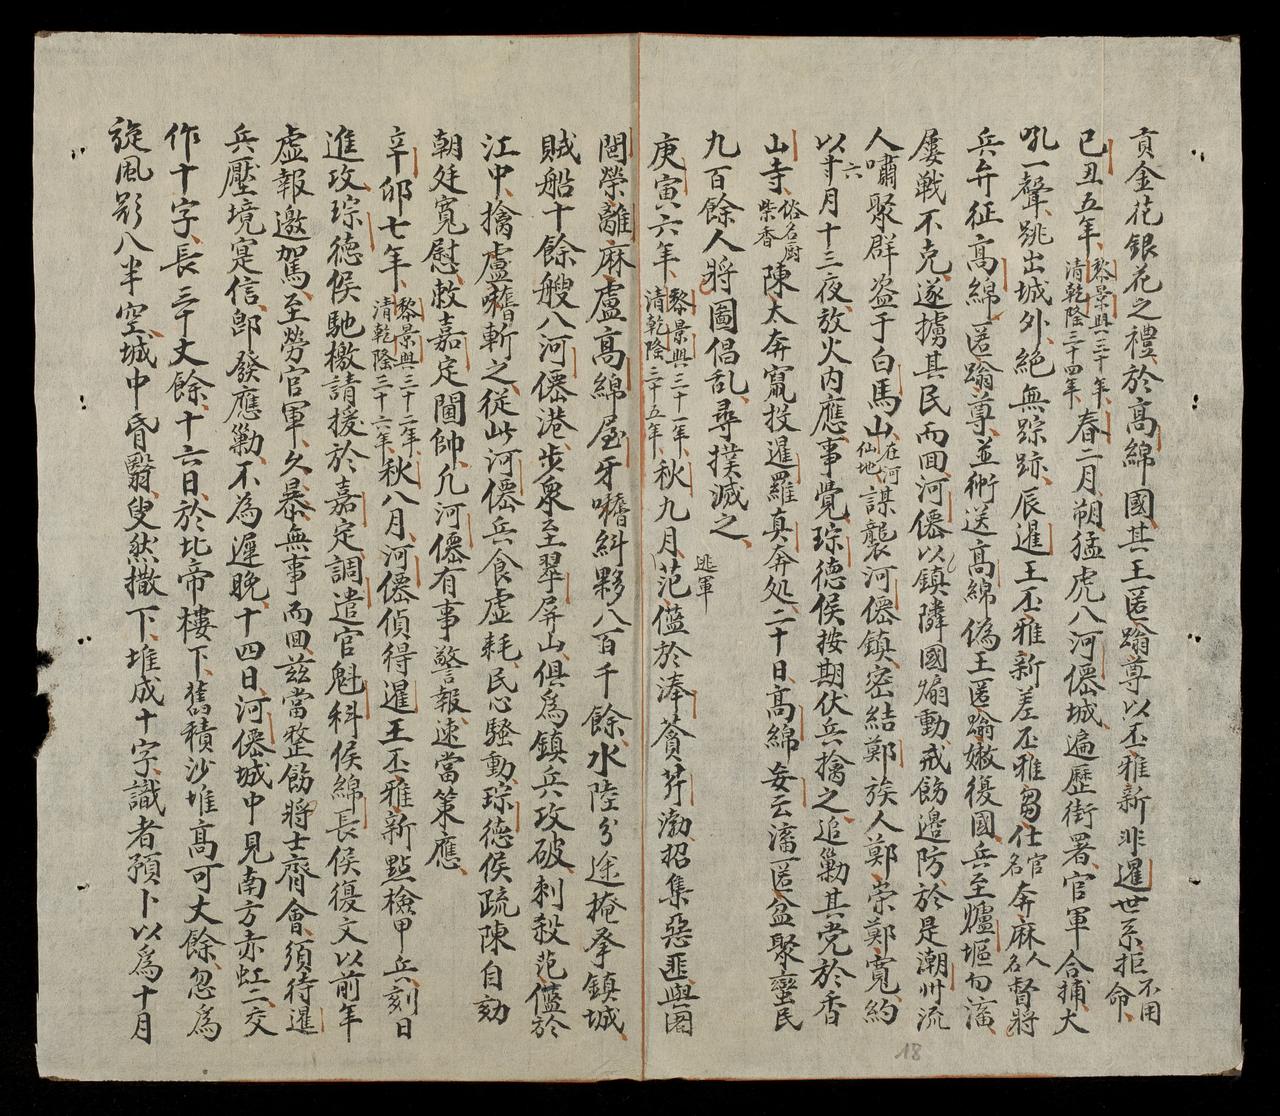 貢金花銀花之禮於高綿國其王匿螉尊以丕雅新非暹世系拒不用命
己丑五年黎景興三十年清乾隆三十四年春二月朔猛虎入河僊城遍歷街署官軍合捕大
吼一聲跳出城外絕無踪跡辰暹王丕雅新差丕雅芻仕官名奔麻人名督將
兵弁征高綿匿螉尊並術送高綿偽王匿螉嫩復國兵至爐堀匂瀋
屢戦不克遂擄其民而回河僊以鎮隣國煽動戒飭邊防於是潮州流
人嘯聚群盗于白馬山在河仙地謀襲河僊鎮密結鄭族人鄭崇鄭寬約
以六月十三夜放火内應事覺琮德侯按期伏兵擒之追勦其党於香
山寺俗名廚柴香陳太奔竄投暹羅真奔処二十日高綿妄云瀋匿盆聚蠻民
九百餘人將圖倡乱尋撲滅之
庚寅六年黎景興三十一年清乾隆三十五年秋九月逃軍范儖於溙蕡芹渤招集惡匪與闍
閭榮離麻盧高綿屋牙囋糾夥八百千餘水陸分途掩夆鎮城
賊船十餘艘入河僊港步衆至翠屏山俱爲鎮兵攻破刺殺范儖於
江中擒盧囋斬之従此河僊兵食虚耗民心騷動琮德侯疏陳自劾
朝廷寬慰敕嘉定閫帥凢河僊有事警報速當策應
辛卯七年黎景興三十二年清乾隆三十六年秋八月河僊偵得暹王丕雅新點檢甲兵刻日
進攻琮德侯馳檄請援於嘉定調遣官魁科侯綿長侯復文以前年
虚報邀駕至勞官軍久暴無事而回茲當整飭將士齊會須待暹
兵壓境寔信即發應勦不為遲晚十四日河僊城中見南方赤虹二交
作十字長三十丈餘十六日於北帝樓下舊積沙堆高可大餘忽為
旋風影入半空城中昏翳叟然撒下堆成十字識者預卜以爲十月
18